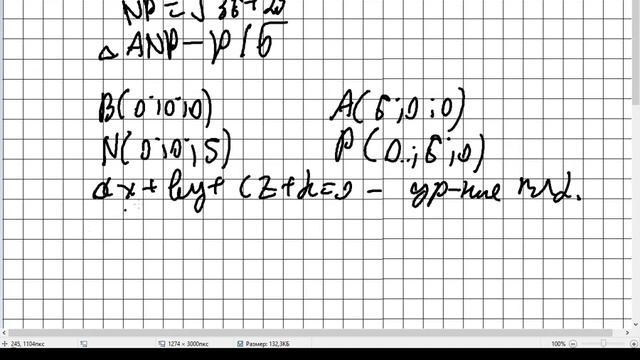 NP = √36+25
△ ANP – р/б
B(0;0;0) A(6;0;0)
N(0;0;5) P(0;6;0)
ax + by + cz + d = 0 – ур-ние пл.
245, 1104пкс 1274 × 3000пкс Размер: 132,3КБ 100%